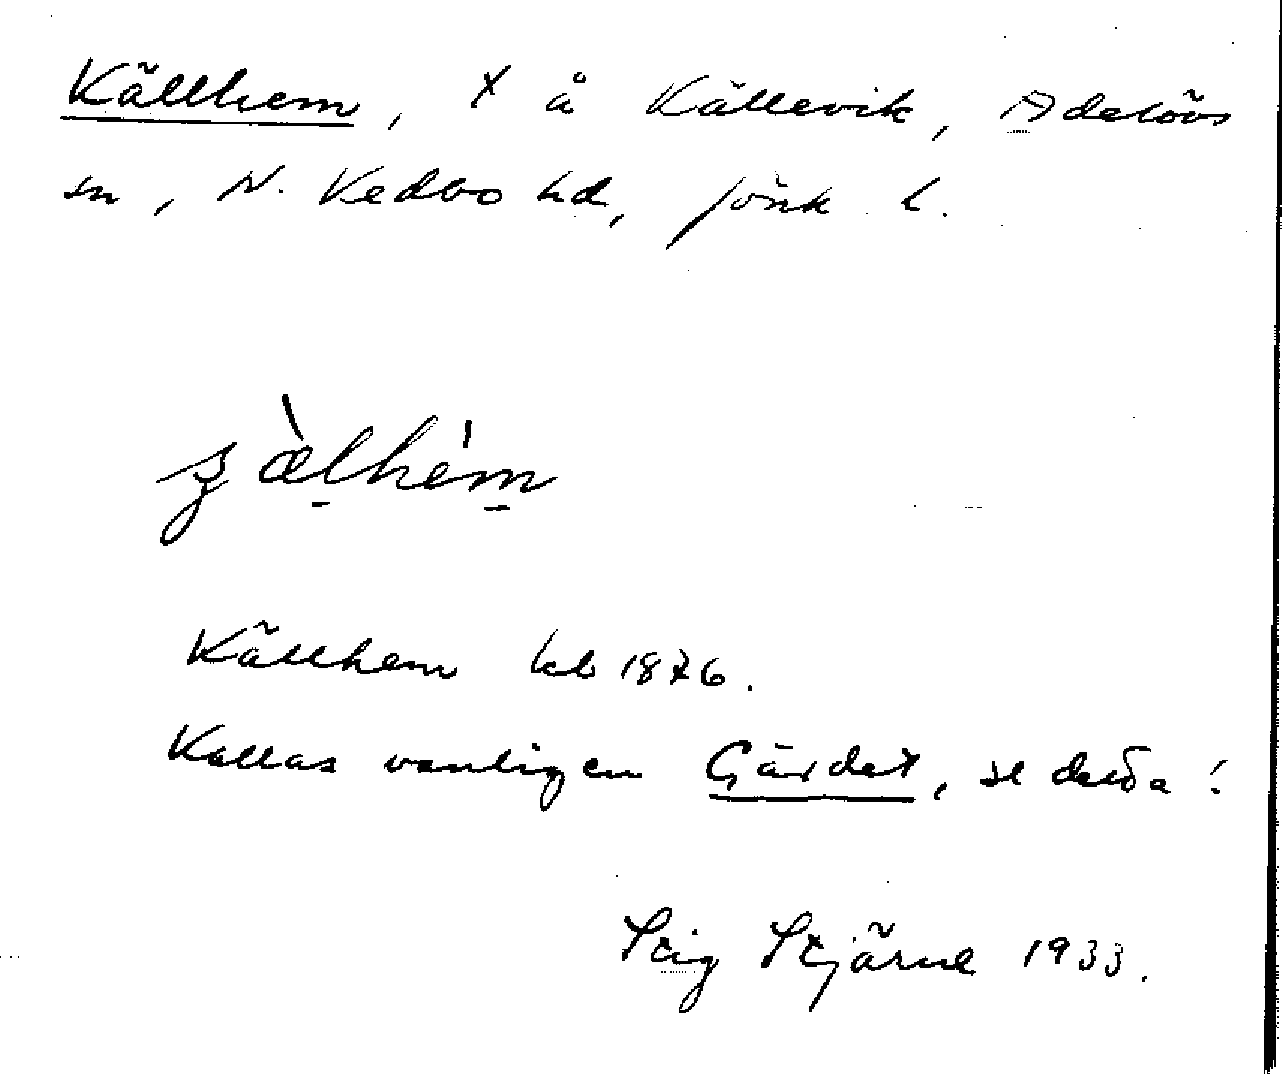 Källhem, x å Källevik, Adelövs
sn, N. Vedbo hd, Jönk l.
Källhem kb 1876.
Kallas vanligen Gärdet, se detta!
Stig Stjärne 1933.